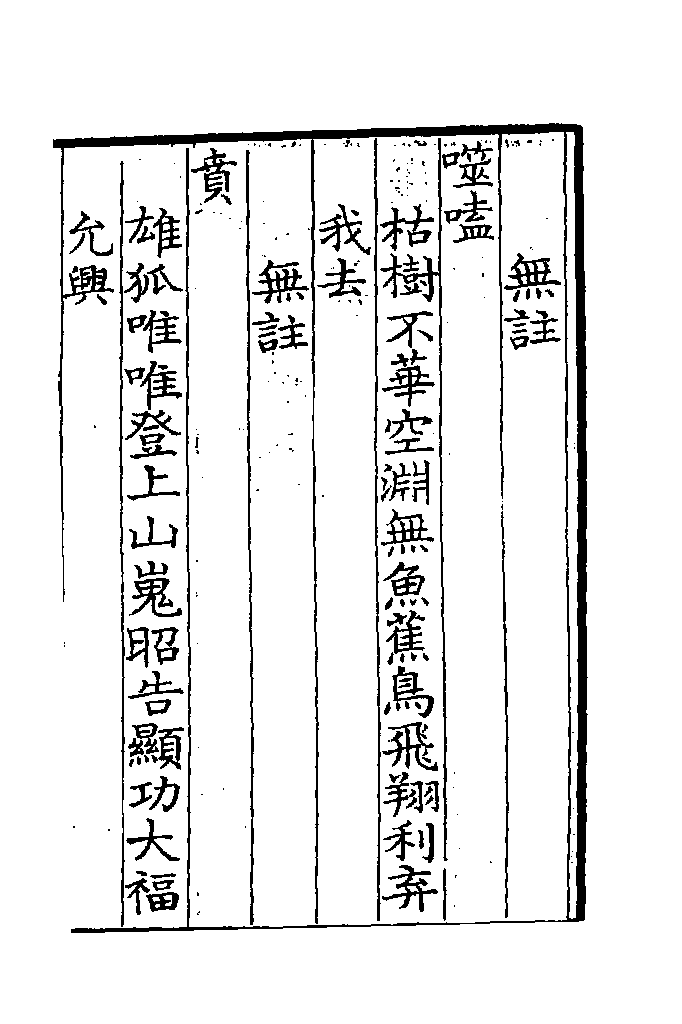 無註
噬嗑
枯樹不華空淵無魚蕉鳥飛翔利弃
我去
無註
賁
雄狐唯唯登上山嵬昭告顯功大福
允興